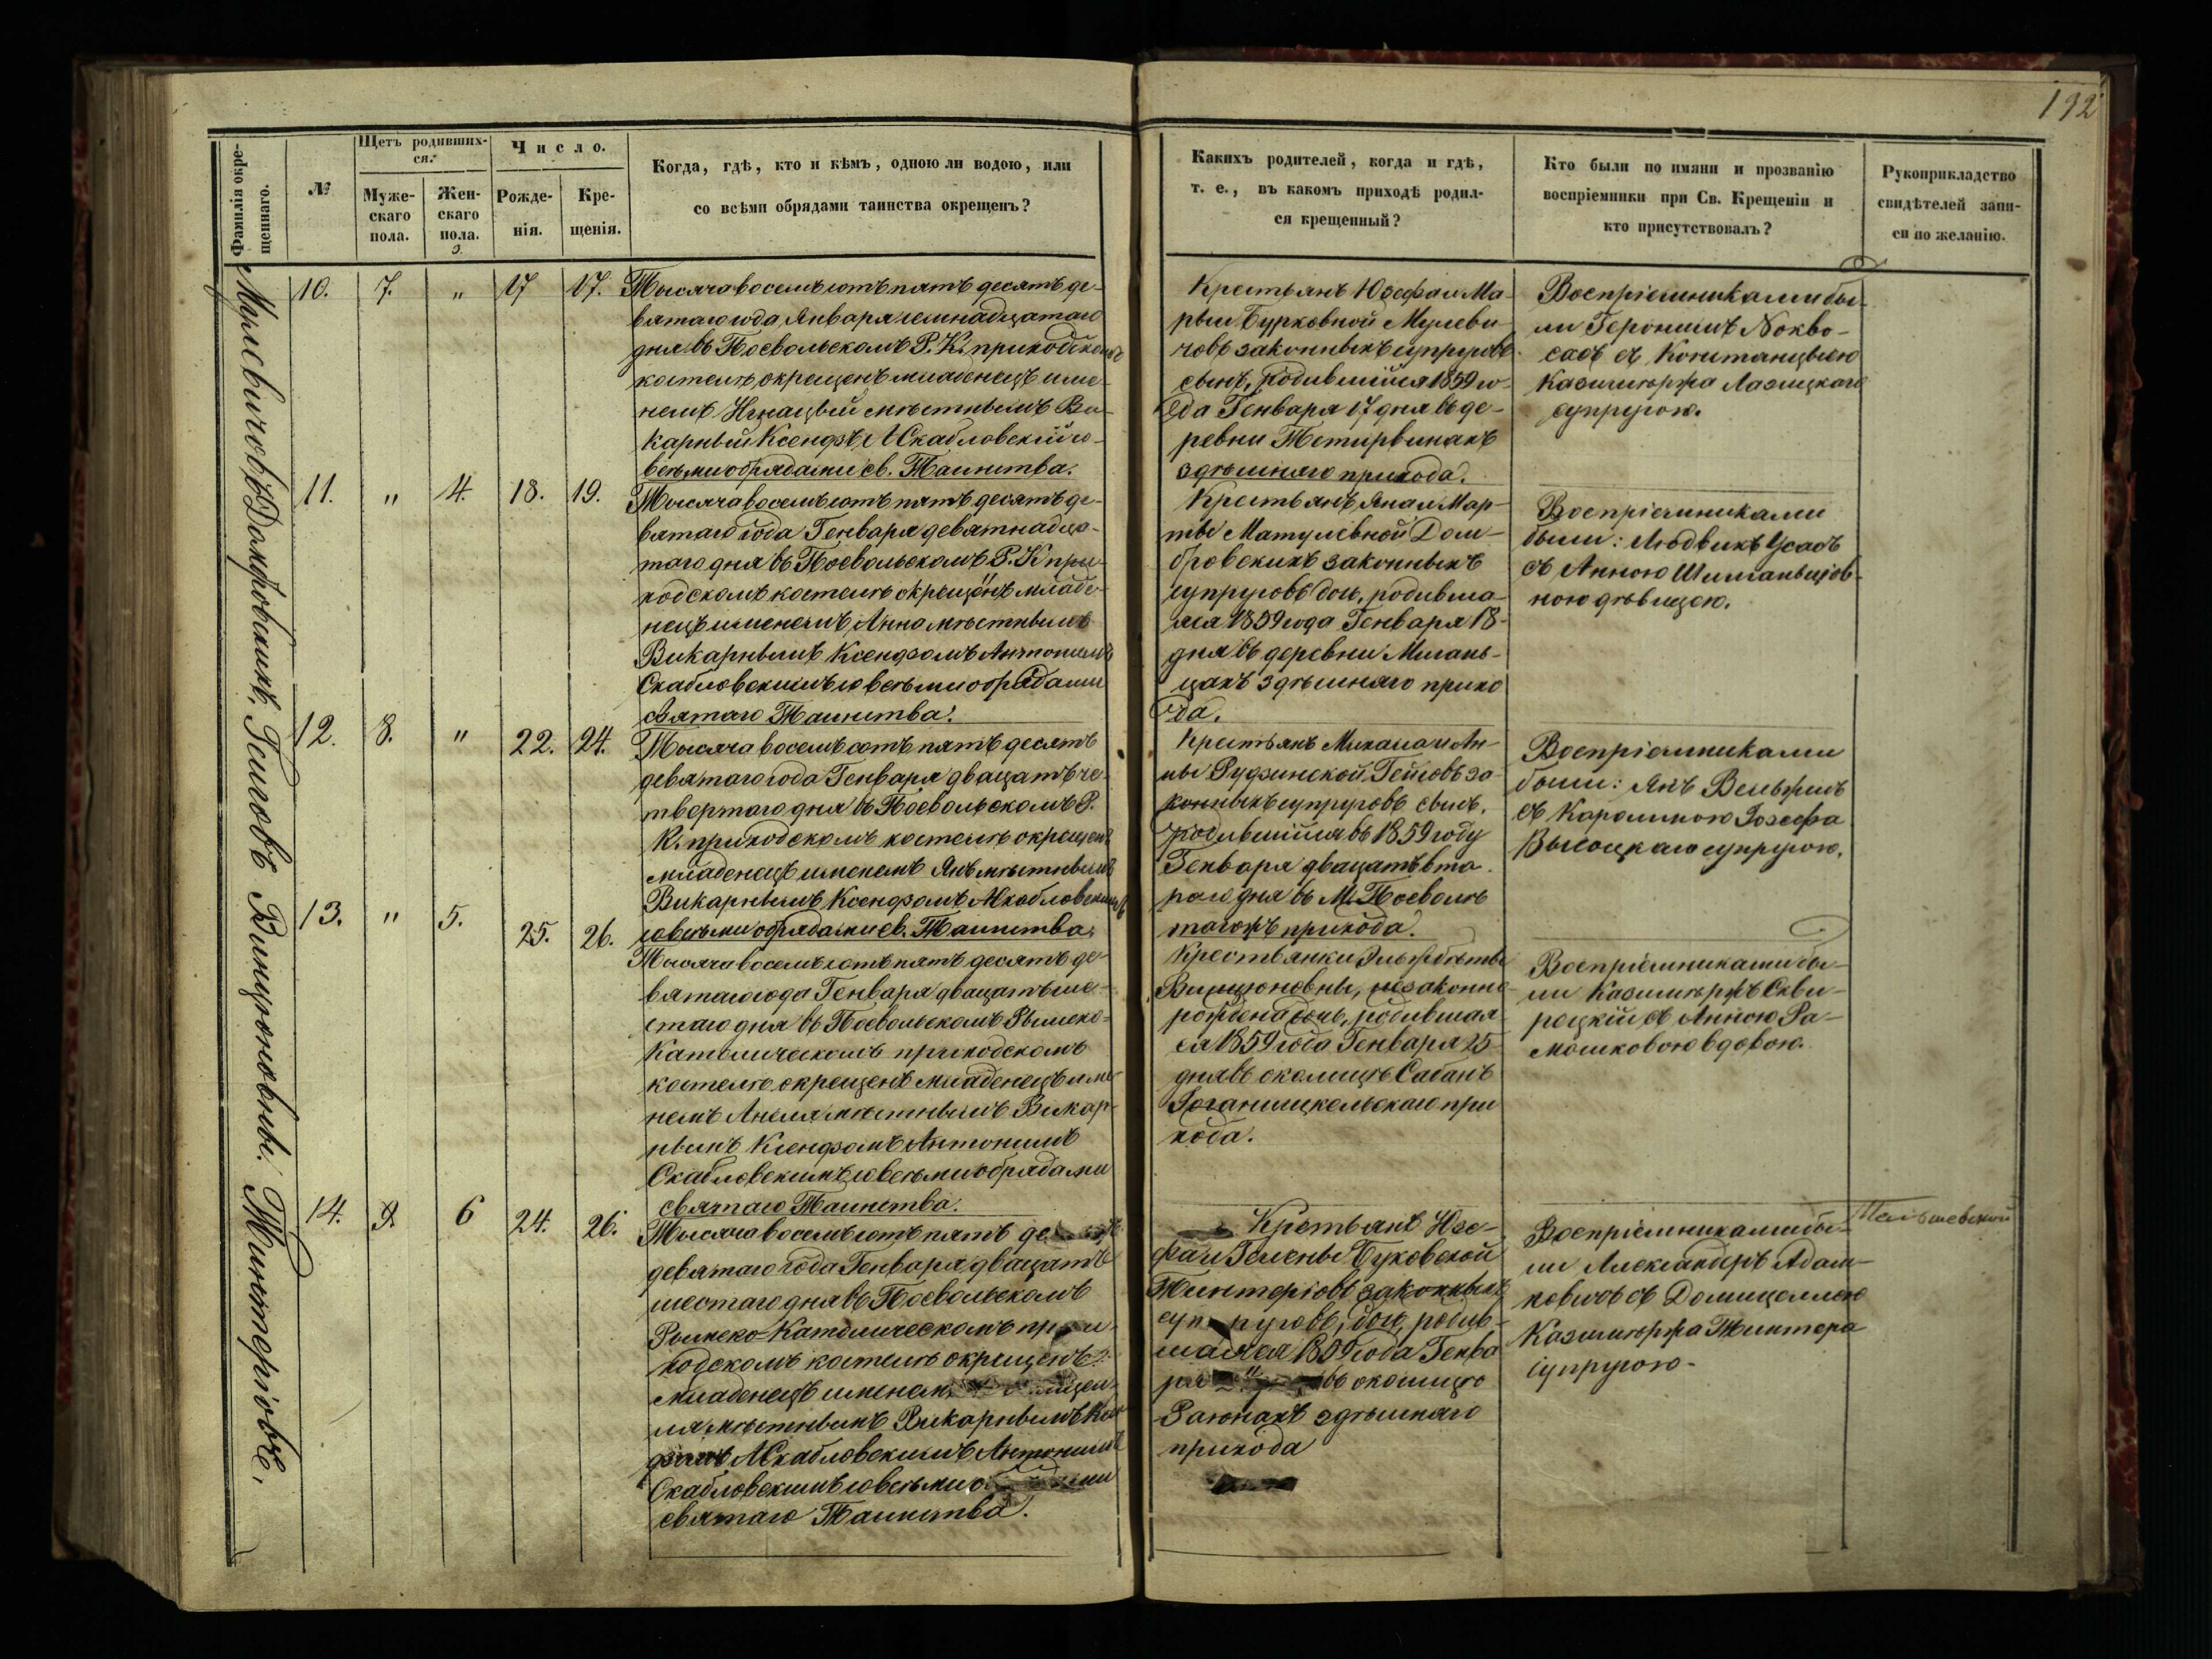 192
Фамилія окре-
щеннаго.
№
Щетъ родивших-
ся.
Муже-
скаго
пола.
Жен-
скаго
пола.
3.
Число.
Рожде-
нія.
Кре-
щенія.
Когда, гдѣ, кто и кѣмъ, одною ли водою, или
со всѣми обрядами таинства окрещенъ?
Какихъ родителей, когда и гдѣ,
т. е., въ какомъ приходѣ родил-
ся крещенный?
Кто были по имяни и прозванію
воспріемники при Св. Крещеніи и
кто присутствовалъ?
Рукоприкладство
свидѣтелей запи-
си по желанію.
Мулевичовъ
10. 7. " 17 17.
Тысяча восемъ сотъ пятъ десятъ де-
вятаго года Января семнадцатаго
дня въ Посвольскомъ Р. К. приходскомъ
костелѣ, окрещенъ младенецъ име-
немъ Игнацый мѣстнымъ Ви-
карный Ксендзъ А Скабловскій со
всѣми обрядами св. Таинства.
Крестьянъ Юзефа и Ма-
рыи Бурковной Мулеви-
човъ законныхъ супруговъ
сынъ, родившійся 1859 го-
да Генваря 17 дня въ де-
ревни Тетирвинахъ
здѣшняго прихода.
Воспріемниками бы-
ли Геронимъ
съ Констанцыею
Казимѣржа Лазицкаго
супругою.
Домбровскихъ
11. " 4. 18. 19.
Тысяча восемъ сотъ пятъ десятъ де-
вятаго года Генваря девятнадца-
таго дня въ Посвольскомъ Р. К при-
ходскомъ костелѣ окрещёнъ младе-
нецъ именемъ Анна мѣстнымъ
Викарнымъ Ксендзомъ Антонимъ
Скабловскимъ со всѣми обрядами
святаго Таинства.
Крестьянъ Яна и Мар-
ты Матулевной Дом-
бровскихъ законныхъ
супруговъ дочь, родивша-
яся 1859 года Генваря 18
дня въ деревни Мигань-
цахъ здѣшняго прихо
да.
Воспріемниками
были: Людвикъ Усасъ
съ Анною
ною дѣвицею.
Гейговъ
12. 8. " 22. 24.
Тысяча восемъ сотъ пятъ десятъ
девятаго года Генваря двацатъ че-
твертаго дня въ Посвольскомъ Р.
К. приходскомъ костелѣ окрещенъ
младенецъ именемъ Янъ мѣстнымъ
Викарнымъ Ксендзомъ АСкабловскимъ
со всѣми обрядами св. Таинства.
Крестьянъ Михала и Ан-
ны Рудзинской Гейговъ за-
конныхъ супруговъ сынъ,
родившійся въ 1859 году
Генваря двацатъ вто-
раго дня въ М. Посволѣ
тагожъ прихода.
Воспріемниками
были: Янъ
съ Каролиною Іозефа
Высоцкаго супругою.
Винцюновны.
13. " 5. 25. 26.
Тысяча восемъ сотъ пятъ десятъ де-
вятаго года Генваря двацатъ ше-
стаго дня въ Посвольскомъ Рымско-
Католическомъ приходскомъ
костелѣ окрещенъ младенецъ име-
немъ Анеля мѣстнымъ Викар-
нымъ Ксендзомъ Антонимъ
Скабловскимъ со всѣми обрядами
святаго Таинства.
Крестьянки Эльжбѣты
Винцюновны, незаконно
рождена дочь, родившая-
ся 1859 года Генваря 25
дня въ околицѣ Сабанъ
при
хода.
Воспріемниками бы-
ли Казимѣржъ Скви-
рецкій съ Анною Ра-
машковою вдовою.
Тинтеріовъ.
14. 9. 6 24. 26.
Тысяча восемъ сотъ пятъ
девятаго года Генваря двацатъ
шестаго дня въ Посвольскомъ
Рымско-Католическомъ при-
ходскомъ костелѣ окрещенъ
младенецъ именемъ
мѣстнымъ Викарнымъ Ксен
дзомъ АСкабловскимъ Антонимъ
Скабловскимъ со всѣми
святаго Таинства.
Крестьянъ Юзе-
фа и Гелены Буковской
Тинтеріовъ законныхъ
супруговъ, дочь родив-
шаяся 1859 года Генва
ря въ околицѣ
здѣшняго
прихода
Воспріемниками бы-
ли Александеръ Адам-
ковичъ съ Домицеллею
Казимѣржа Тинтера
супругою.